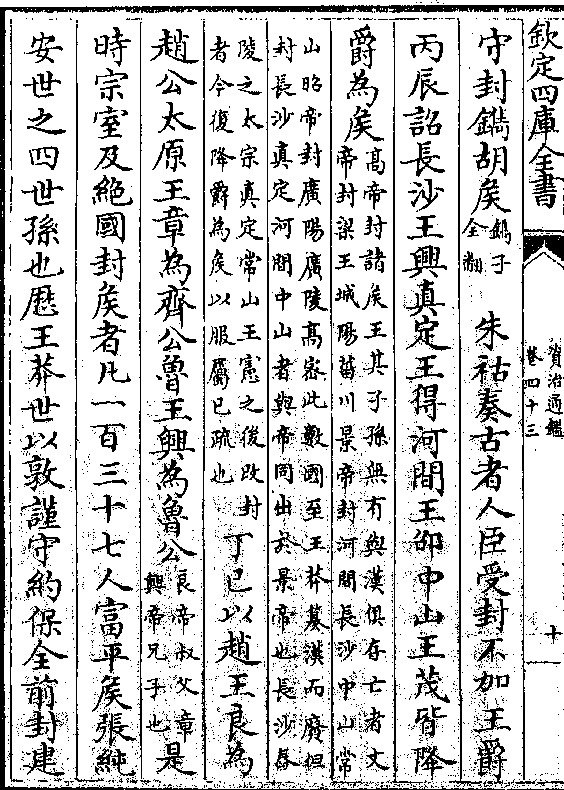 欽定四庫全書
資治通鑑
卷四十三
十
守封鐫胡矦鐫子全翻 朱祜奏古者人臣受封不加王爵
丙辰詔長沙王興真定王得河間王邵中山王茂皆降
爵為矦
高帝封諸矦王其子孫無有與漢俱存亡者文
帝封梁王城陽菑川景帝封河間長沙中山常
山昭帝封廣陽廣陵高密此數國至王莽簒漢而廢但
封長沙真定河間中山者與帝同出於景帝也長沙舂
陵之太宗真定常山王憲之後改封
者今復降爵為矦以服屬已疏也
丁巳以趙王良為
趙公太原王章為齊公魯王興為魯公良帝叔父章興帝兄子也是
時宗室及絶國封矦者凡一百三十七人富平矦張純
安世之四世孫也歴王莽世以敦謹守約保全前封建